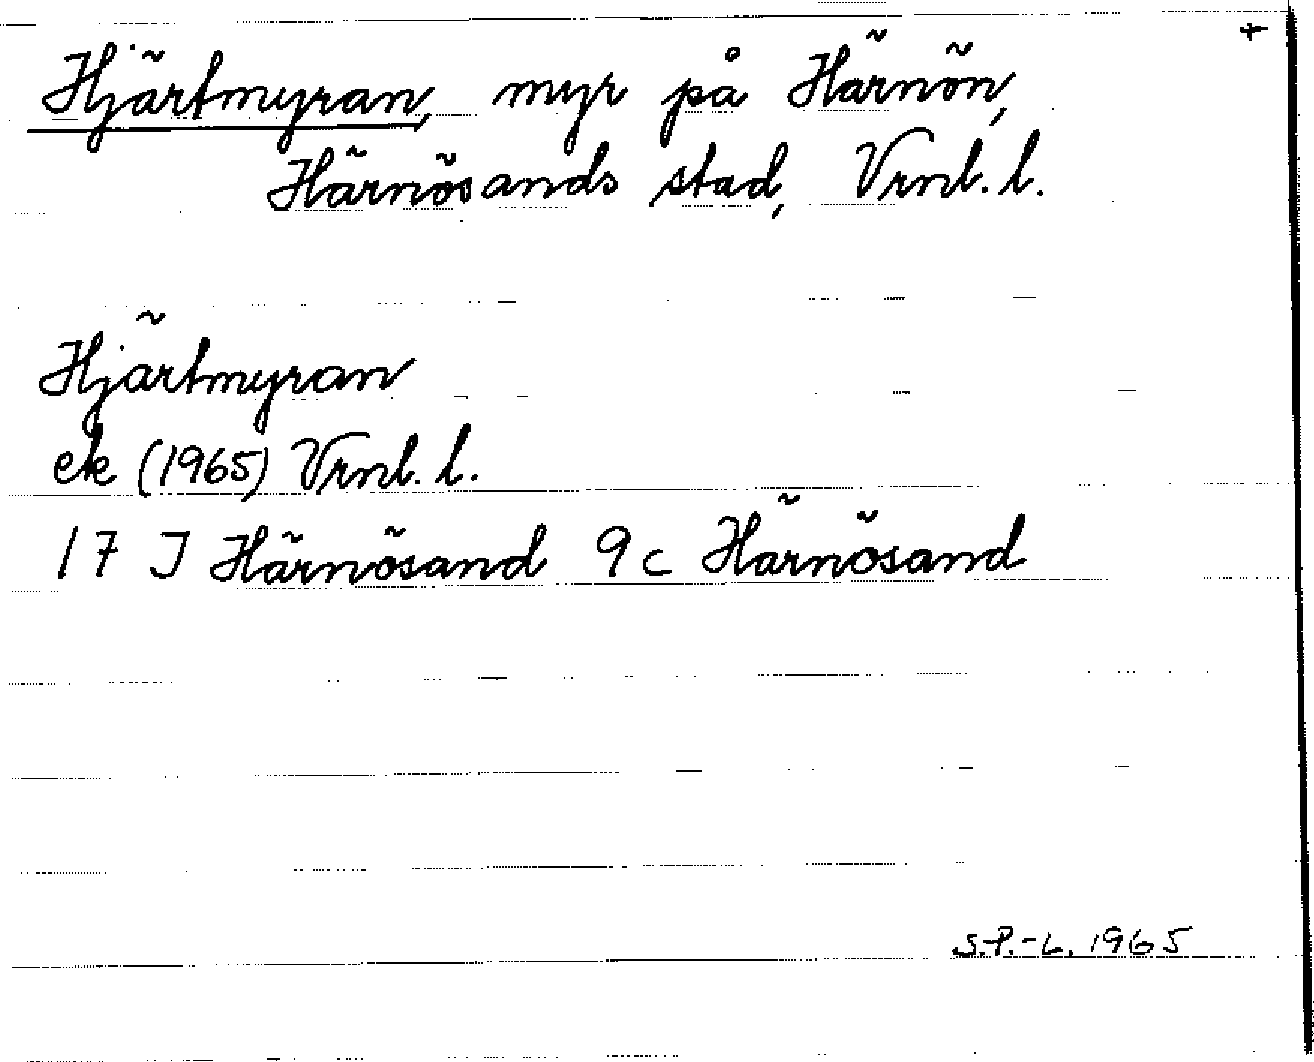 +
Hjärtmyran, myr på Härnön,
Härnösands stad, Vrnl. l.
Hjärtmyran
ek (1965) Vrnl. l.
17 J Härnösand 9c Härnösand
S.P.-L. 1965